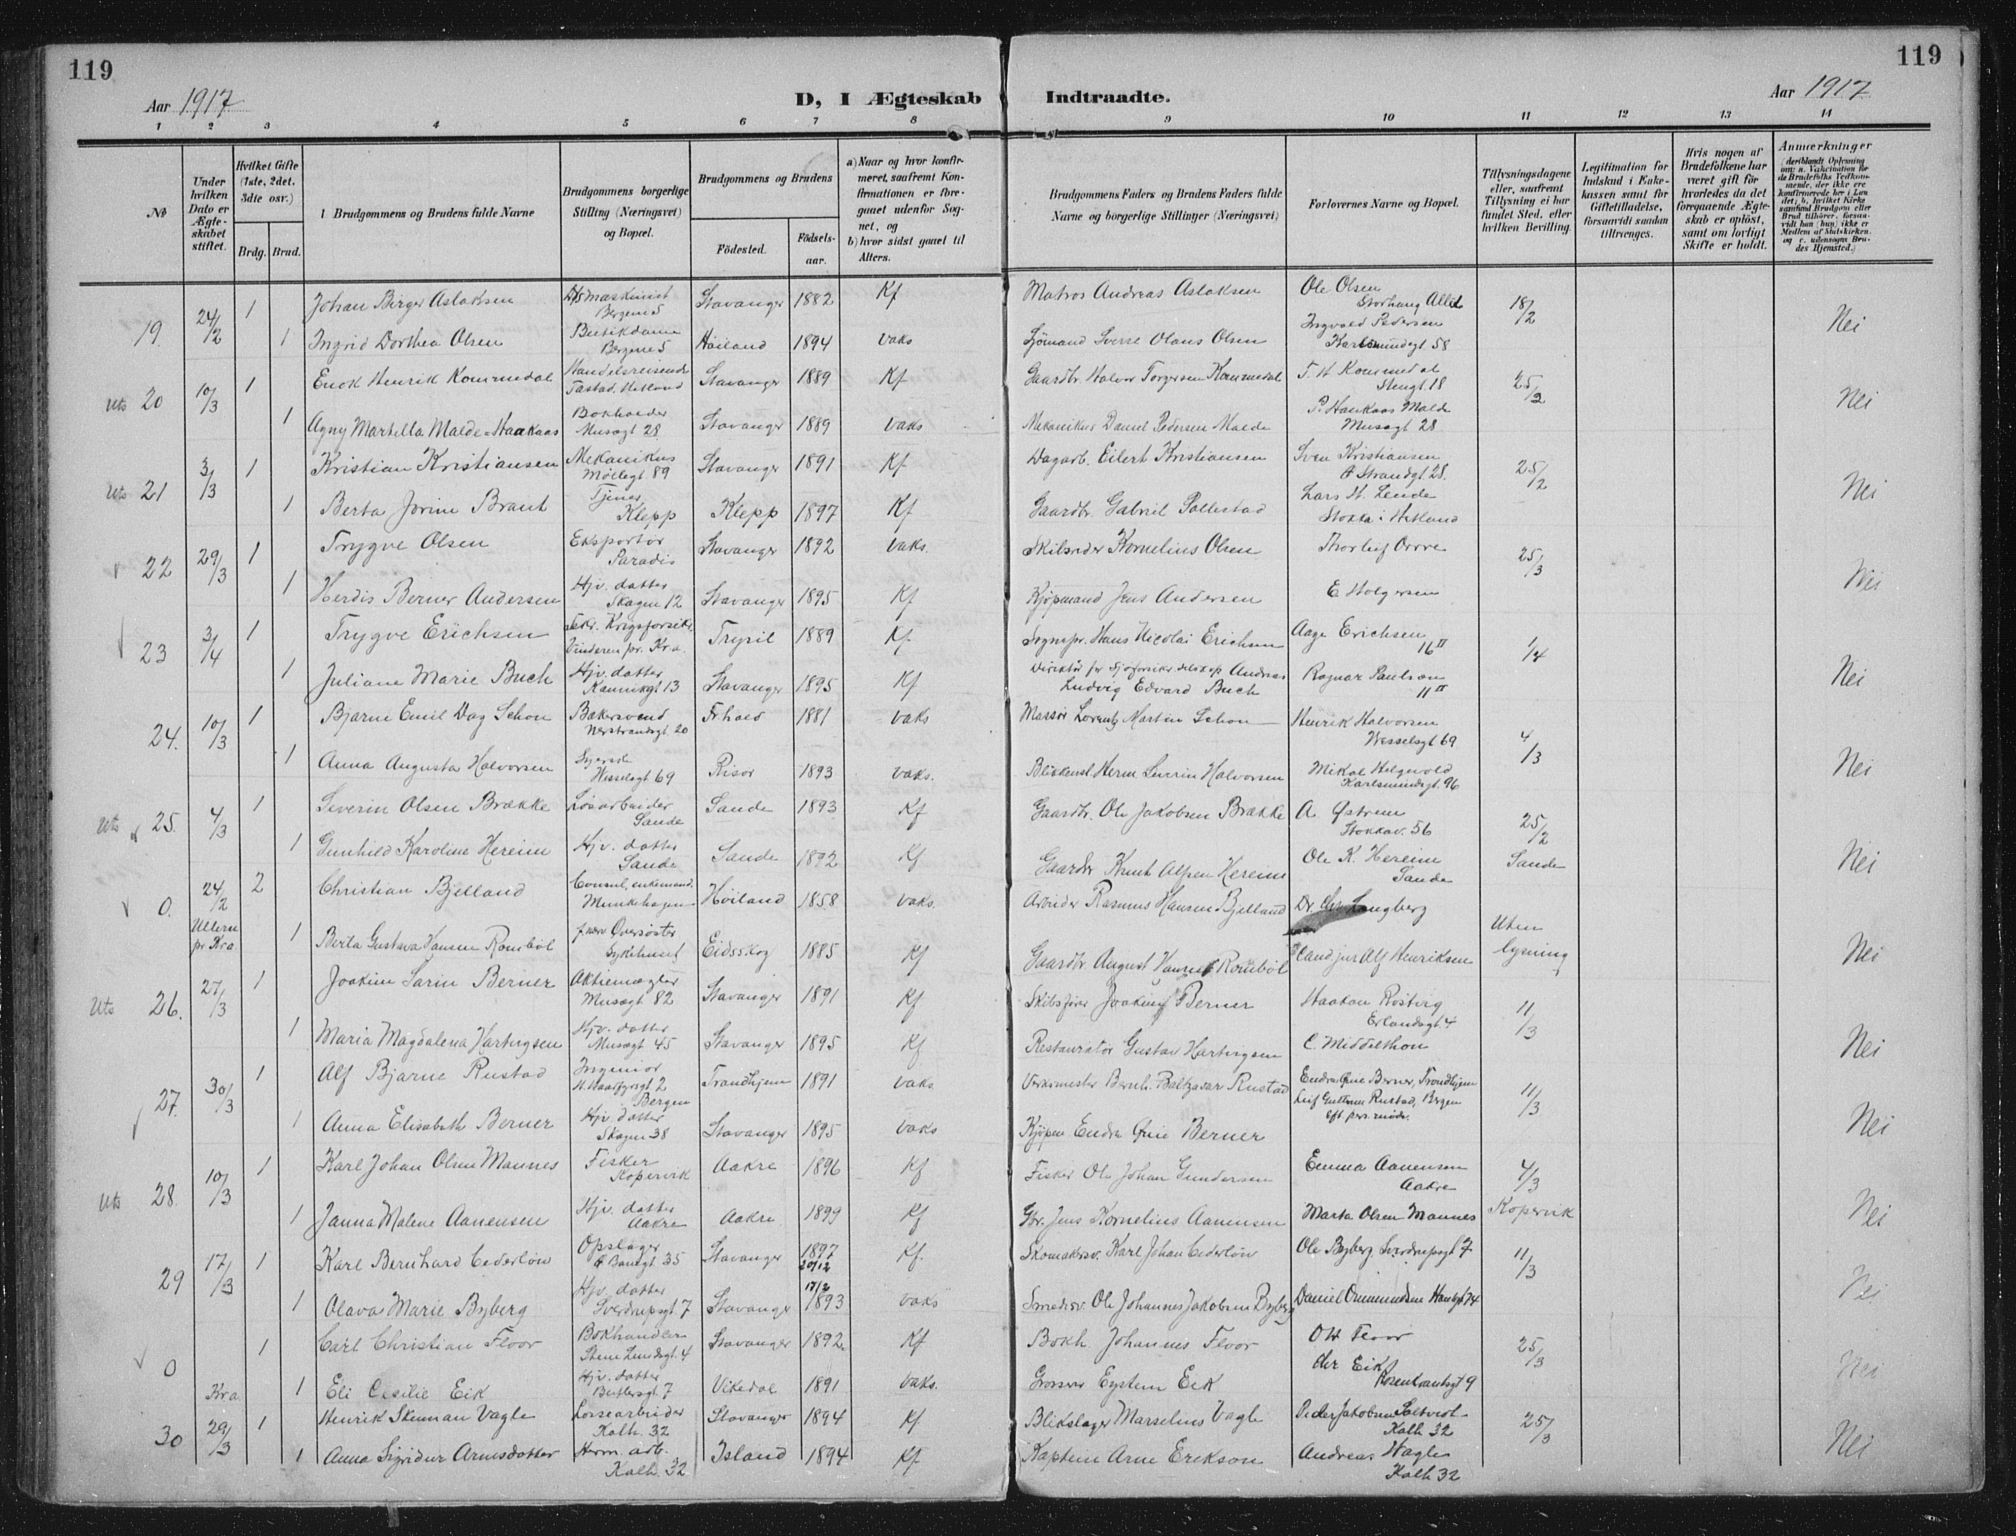 119
119
Aar 1917
D, I Ægteskab Indtraadte.
Aar 1917
1 2 3 4 5 6 7 8 9 10 11 12 13 14
No
Under hvilken Dato er Ægteskabet stiftet.
Hvilket Gifte (1ste, 2det, 3dte osv.)
Brdg. Brud.
1 Brudgommens og Brudens fulde Navne
Brudgommens borgerlige Stilling (Næringsvei) og Bopæl.
Brudgommens og Brudens
Fødested.
Fødselsaar.
a) Naar og hvor konfirmeret, saafremt Konfirmationen er foregaaet udenfor Sognet, og
b) hvor sidst gaaet til Alters.
Brudgommens Faders og Brudens Faders fulde Navne og borgerlige Stillinger (Næringsvei)
Forlovernes Navne og Bopæl.
Tillysningsdagene eller, saafremt Tillysning ei har fundet Sted, efter hvilken Bevilling.
Legitimation for Indskud i Enkekassen samt for Giftetilladelse, forsaavidt saadan tiltrænges.
Hvis nogen af Brudefolkene har været gift før hvorledes da det foregaaende Ægteskab er opløst, samt om lovligt Skifte er holdt.
Anmærkninger
19. 24/2 1 Johan Birger Aslaksen Stavanger 1882 Kf Matros Andreas Aslaksen Ole Olsen 18/2 Nei
1 Ingrid Dorthea Olsen Bergens Høiland 1894 vaks Sjømand Sverre Olaus Olsen Ingvald Pedersen Karlsmindegt 58
Uts 20 10/3 1 Enok Henrik Kommedal Handelsreisende Tastad, Hetland Stavanger 1889 Kf Gaardbr. Halvor Torgersen Kommedal T. H. Kommedal Stengt 18 25/2 Nei
1 Agny Martella Malde-Haakaas Bokholder Musægt 28 Stavanger 1889 vaks Mekaniker Daniel Pedersen Malde P. Haukaas Malde Musægt 28
Uts 21 3/3 1 Kristian Kristiansen Mekanikus Møllegt 89 Stavanger 1891 Kf Dagarb. Eilert Kristiansen Sven Kristiansen Ø Strandgt 28 25/2 Nei
1 Berta Jorine Braut Tjener Klepp Klepp 1897 Kf Gaardbr. Gabriel Pollestad Lars H. Lende Stokka i Hetland
22 29/3 1 Trygve Olsen Eksportør Paradis Stavanger 1892 vaks. Skibsreder Kornelius Olsen Thorleif Orre 25/3 Nei
1 Herdis Berner Andersen Hjv. datter Skagen 12 Stavanger 1895 Kf Kjøpmand Jens Andersen E Holgersen
23 3/4 1 Trygve Erichsen Vinderen pr. Kra. Trysil 1889 Kf Sognspr. Hans Nicolai Erichsen Aage Erichsen 16 II 1/4 Nei
1 Juliane Marie Buch Hjv. datter Kannikgt 13 Stavanger 1895 Kf Direktør for Sjøforsikr. selskap Andreas Ludvig Edvard Buch Ragnar Paulson 11 II
24. 10/3 1 Bjarne Emil Dag Schon Bakersvend Nerstrandsgt 20 Frhald 1881 vaks Massør Lorentz Martin Schon Henrik Halvorsen Wesselsgt 69 4/3 Nei
1 Anna Augusta Halvorsen Wesselsgt 69 Risør 1893 vaks. Herm Severin Halvorsen Mikal Helgevold Karlsmindegt 96
Uts 25. 4/3 1 Severin Olsen Brække Løsarbeider Sande Sande 1893 Kf Gaardbr. Ole Jakobsen Brække A. Østrem Stokkav. 56 25/2 Nei
1 Gunhild Karoline Hereim Hjv. datter Sande Sande 1892 Kf Gaardbr Knut Hereim Ole K. Hereim Sande Sande
0. 24/2 2 Christian Bjelland Consul, enkemand Munkehagen Høiland 1858 vaks. Arbeider Rasmus Hansen Bjelland Dr. Langberg Uten lysning Nei
Ullern pr. Kra. 1 Berta Gustava Hansen Rombøl Oversøster Sykehuset Eidsskog 1885 Kf Gaardbr. August Hansen Rombøl Cand jur Alf Henriksen
Uts 26. 27/3 1 Joakim Sarin Berner Aktiemægler Musægt 82 Stavanger 1891 Kf Skibsfører Joakim Berner Haakon Røstvig Erlandsgt 4 11/3 Nei
1 Maria Magdalena Hartvigsen Hjv. datter Musægt 45 Stavanger 1895 Kf Restauratør Gustav Hartvigsen C. Middelthon
27. 30/3 1 Alf Bjarne Rustad Ingeniør H. Haarfgrsgt 2 Bergen Trondhjem 1891 vaks Verksmester Bernh. Baltzasar Rustad Endre Qvie Berner, Trondhjem Leif Guttorm Rustad, Bergen 11/3 Nei
1 Anna Elisabeth Berner Hjv. datter Skagen 38 Stavanger 1895 vaks Kjøpm Endre Qvie Berner
Uts 28. 10/3 1 Karl Johan Olsen Mannes Fisker Kopervik Aakre 1896 Kf Fisker Ole Johan Gundersen Emma Aanensen Aakre 4/3 Nei
1 Janna Malene Aanensen Hjv. datter Aakre Aakre 1899 Kf Gbr. Jens Kornelius Aanensen Marta Olsen Mannes Kopervik
29 17/3 1 Karl Bernhard Cederløw Opslager Ø Banegt 35 Stavanger 1897 20/12 Kf. Skomakersv. Karl Johan Cederløw Ole Byberg Sverdrupsgt 7 11/3 Nei
1 Olava Marie Byberg Hjv. datter Sverdrupsgt 7 Stavanger 17/2 1893 vaks Smedsv. Ole Johannes Jakobsen Byberg Daniel Ommundsen Haukgt 74
0 1 Carl Christian Floor Bokhandler Stene Lendsgt 4 Stavanger 1892 Kf Bokh. Johannes Floor Ott Floor 25/3 Nei
Kra 1 Eli Cecilie Eik Hjv. datter Vikedal 1891 vaks. Grosserer Eystein Eik Eik Rosenkrantsgt 9
30 29/3 1 Henrik Skeiman Vagle Løssearbeider Kalh. 32 Stavanger 1894 Kf Blikslager Marselius Vagle Peder Jakobsen Saltvedt Kalh 32 25/3 Nei
1 Anna Sigridur Arnesdotter Herm. arb. Kalh. 32 Island 1894 Kf Kaptein Arne Erikson Andreas Vagle Kalh 32